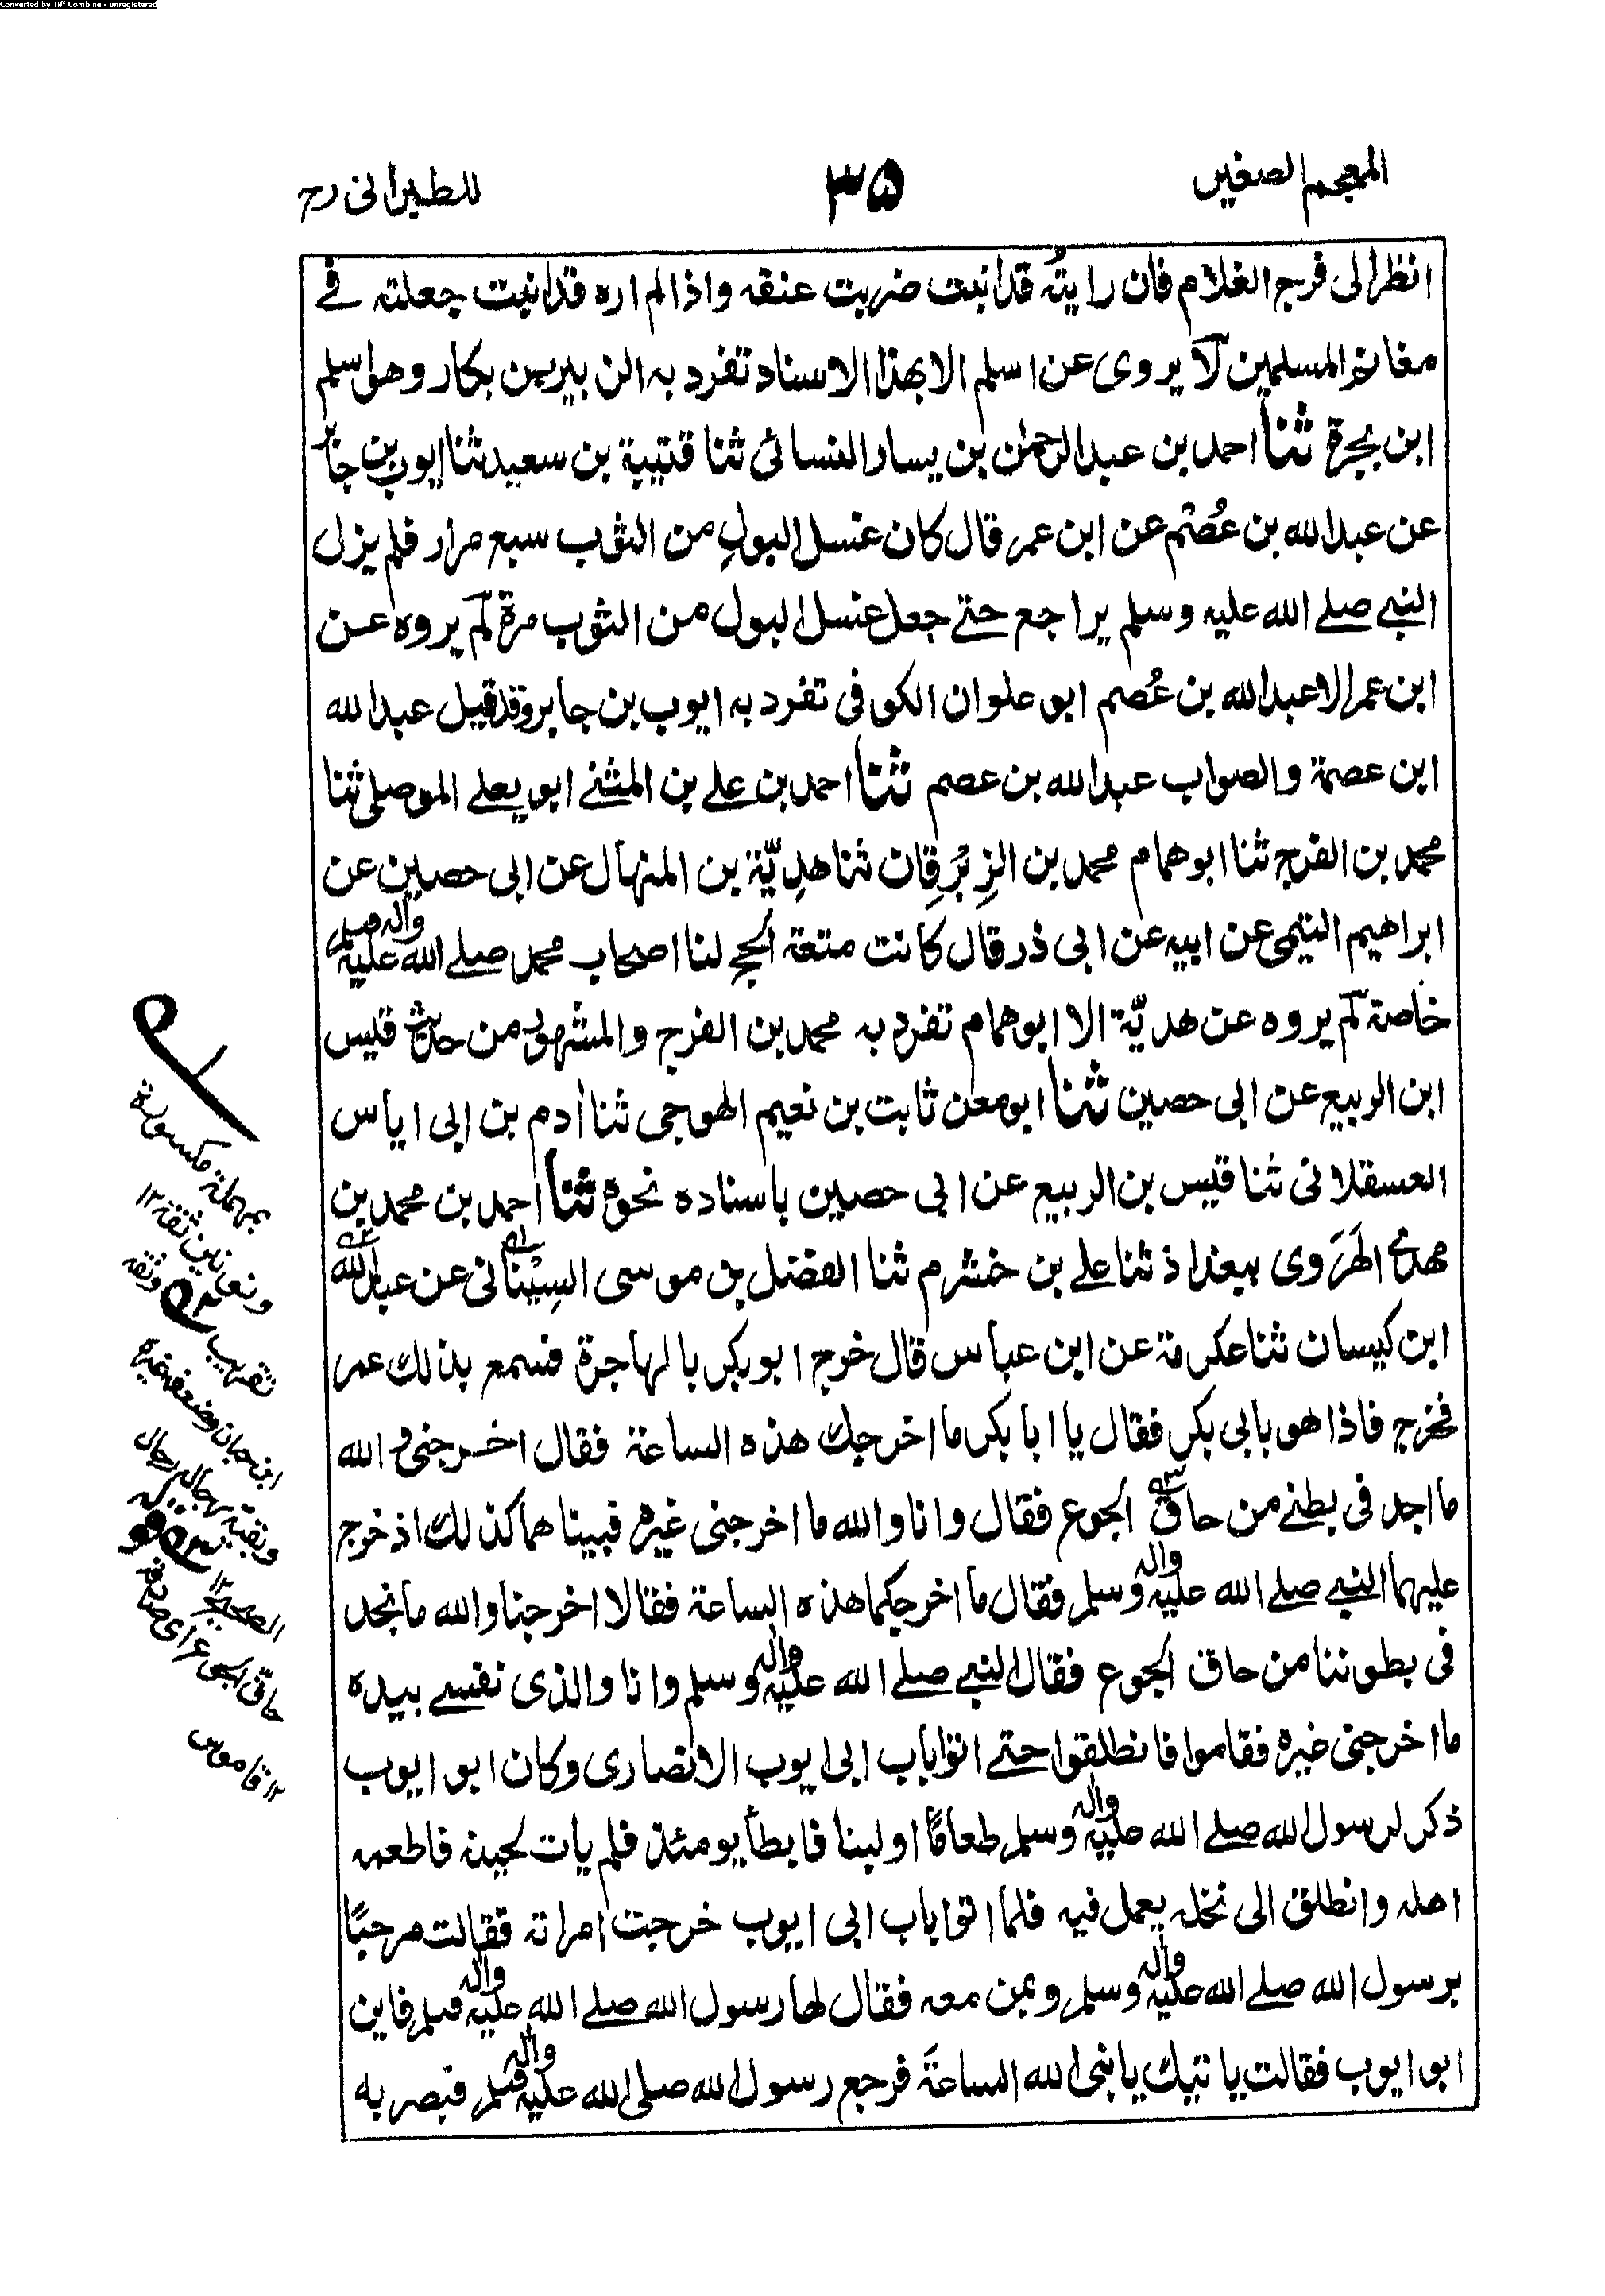 Converted by Tiff Combine - unregistered
المعجم الصغير
٣٥
للطبرانى رح
انظر الى فرج الغلام فان رايتُه قد انبت ضربت عنقه واذا لم اره قد انبت جعلته فے
مغانم المسلمين لا يروى عن اسلم الا بهذا الاسناد تفرد به الزبير بن بكار وهو اسلم
ابن بجرة ثنا احمد بن عبد الرحمٰن بن يسار النسائى ثنا قتيبة بن سعيد ثنا ايوب بن جابر
عن عبد الله بن عُصْم عن ابن عمر قال كان غسل البولِ من الثوب سبع مرار فلم يزل
النبے صلے الله عليه وسلم يراجع حتے جعل غسل البول من الثوب مرة لم يروه عن
ابن عمر الا عبد الله بن عُصم ابو علوان الكوفى تفرد به ايوب بن جابر وقد قيل عبد الله
ابن عصمة والصواب عبد الله بن عصم ثنا احمد بن علے بن المثنے ابو يعلے الموصلى ثنا
محمد بن الفرج ثنا ابو همام محمد بن الزِبْرِقان ثنا هدِيّة بن المنهال عن ابى حصين عن
ابراهيم التيمى عن ابيه عن ابى ذر قال كانت متعة الحج لنا اصحاب محمد صلے الله عليه واله وسلم
خاصة لم يروه عن هديّة الا ابو همام تفرد به محمد بن الفرج والمشهور من حديث قيس
ابن الربيع عن ابى حصين ثنا ابو معن ثابت بن نعيم الهوجى ثنا اٰدم بن ابى اياس
العسقلانى ثنا قيس بن الربيع عن ابى حصين باسناده نحوه ثنا احمد بن محمد بن
مهدى الهَرَوى ببغداذ ثنا علے بن خشرم ثنا الفضل بن موسى السِيْنانى عن عبد الله
ابن كيسان ثنا عكرمة عن ابن عباس قال خرج ابو بكر بالهاجرة فسمع بذلك عمر
فخرج فاذا هو بابى بكر فقال يا ابا بكر ما اخرجك هذه الساعة فقال اخرجنى والله
ما اجد فى بطنے من حاق الجوع فقال وانا والله ما اخرجنى غيره فبينا هما كذلك اذ خرج
عليهما النبے صلے الله عليه واله وسلم فقال ما اخرجكما هذه الساعة فقالا اخرجنا والله ما نجد
فى بطوننا من حاق الجوع فقال النبے صلے الله عليه واله وسلم وانا والذى نفسے بيده
ما اخرجنى غيره فقاموا فانطلقوا حتے اتوا باب ابى ايوب الانصارى وكان ابو ايوب
ذكر لرسول الله صلے الله عليه واله وسلم طعامًا او لبنا فابطأ يومئذ فلم يات لحينه فاطعمه
اهله وانطلق الى نخله يعمل فيه فلما اتوا باب ابى ايوب خرجت امراته فقالت مرحبًا
برسول الله صلے الله عليه واله وسلم وبمن معه فقال لها رسول الله صلے الله عليه واله وسلم فاين
ابو ايوب فقالت ياتيك يا نبى الله الساعةَ فرجع رسول الله صلى الله عليه واله وسلم فبصر به
بمهملة مكسورة
ونونين ثقة ١٢
تقريب
وثقه
ابن حبان وضعفه غيره
وبقية رجاله رجال
الصحيح ١٢
حاق الجوع اى صادقه
١٢ قاموس